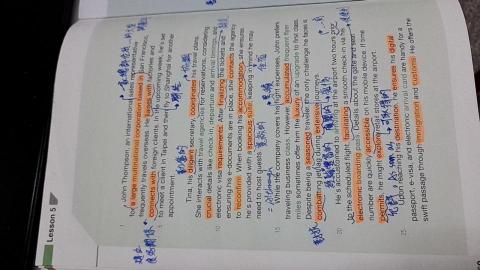 Lesson 5
1 John Thompson, an international sales representative
for a large multinational corporation based in San Francisco,
frequently travels overseas. He liaises with factories and
connects with foreign clients. In the upcoming week, he's set
5 to meet a client in Taipei and then fly to Shanghai for another
appointment.
Tina, his diligent secretary, coordinates his travel plans.
She interacts with travel agencies for reservations, considering
crucial details like check-in, departure and arrival timings, and
10 electronic visa requirements. After finalizing the tickets and
ensuring his e-documents are in place, she contacts the agency
to reconfirm. When booking his accommodations, she ensures
he's provided with a spacious suite, keeping in mind he may
need to host guests.
15 While the company covers his flight expenses, John prefers
traveling business class. However, accumulated frequent flyer
miles sometimes offer him the luxury of an upgrade to first class.
Despite being a seasoned traveler, the only challenge he faces is
combating jet lag during extensive journeys.
20 He's accustomed to arriving at the airport two hours prior
to the scheduled flight, facilitating a smooth check-in via his
electronic boarding pass. Details about the gate and seat
number are quickly accessible on his mobile device. If time
permits, he might explore retail stores at the airport.
25 Upon reaching his destination, he ensures his digital
passport, e-visa, and electronic arrival card are handy for a
swift passage through immigration and customs. He offers the